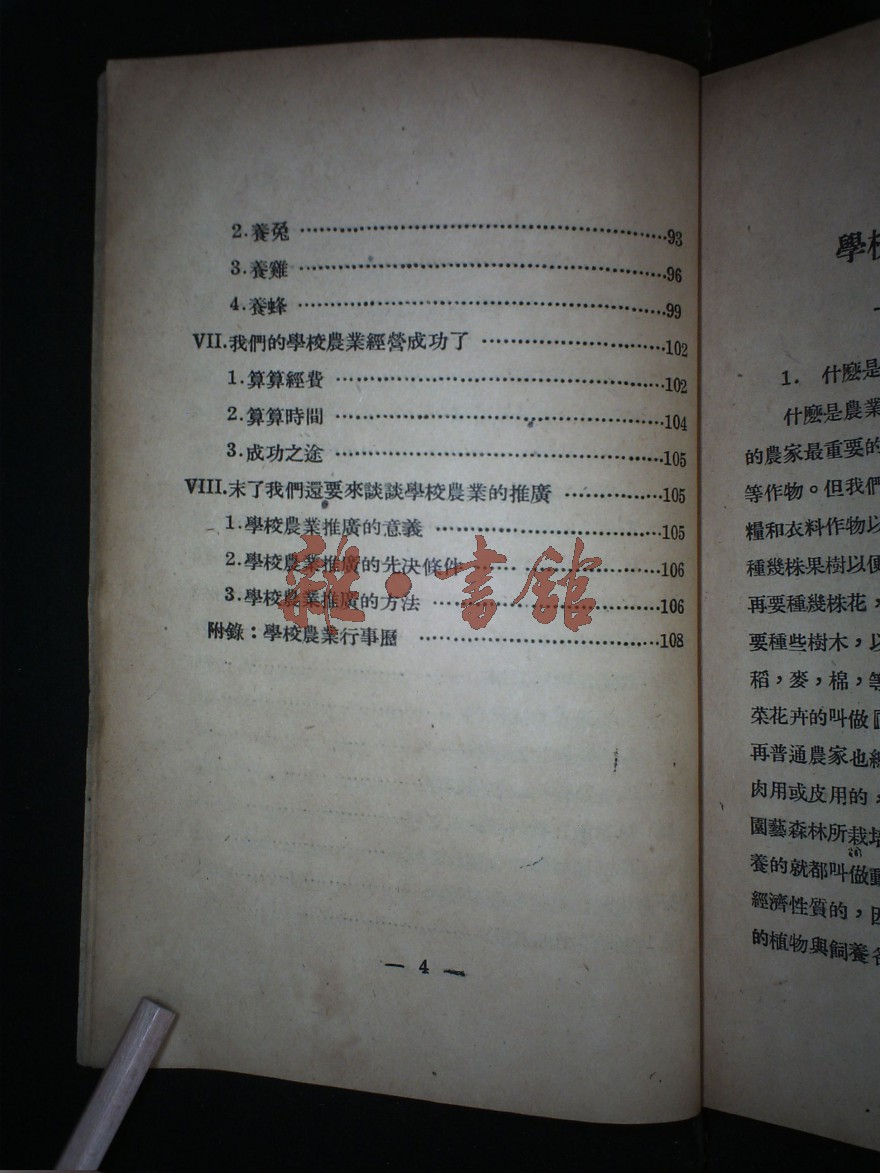 2.養兔 ………93
3.養雞 ………96
4.養蜂 ………99
VII.我們的學校農業經營成功了 ………102
1.算算經費 ………102
2.算算時間 ………104
3.成功之途 ………105
VIII.末了我們還要來談談學校農業的推廣 ………105
1.學校農業推廣的意義 ………105
2.學校農業推廣的先決條件 ………106
3.學校農業推廣的方法 ………106
附錄：學校農業行事曆 ………108
— 4 —
雜·書館
學校
1. 什麼是
什麼是農業
的農家最重要的
等作物。但我們
糧和衣料作物以
種幾株果樹以便
再要種幾株花，
要種些樹木，以
稻，麥，棉，等
菜花卉的叫做
再普通農家也
肉用或皮用的，
園藝森林所栽培
養的就都叫做動
經濟性質的，因
的植物與飼養各